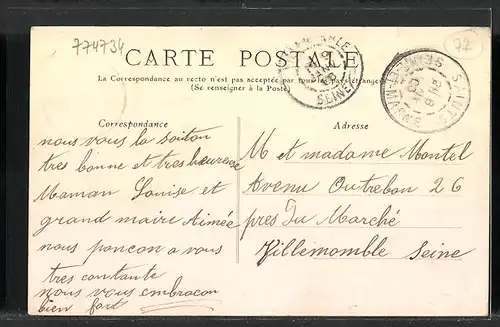 774734
77
CARTE POSTALE
La Correspondance au recto n'est pas acceptée par tous les pays étrangers
(Se renseigner à la Poste)
SEINE
SAINTS
SEINE-ET-MARNE
Correspondance
nous vous la soiton
tres bonne et tres heureuse
Maman Louise et
grand maire Aimée
nous poncon a vous
tres contante
nous vous embracon
bien fort
Adresse
M et madame Montel
Avenu Outrebon 26
pres Du Marché
Villemomble Seine